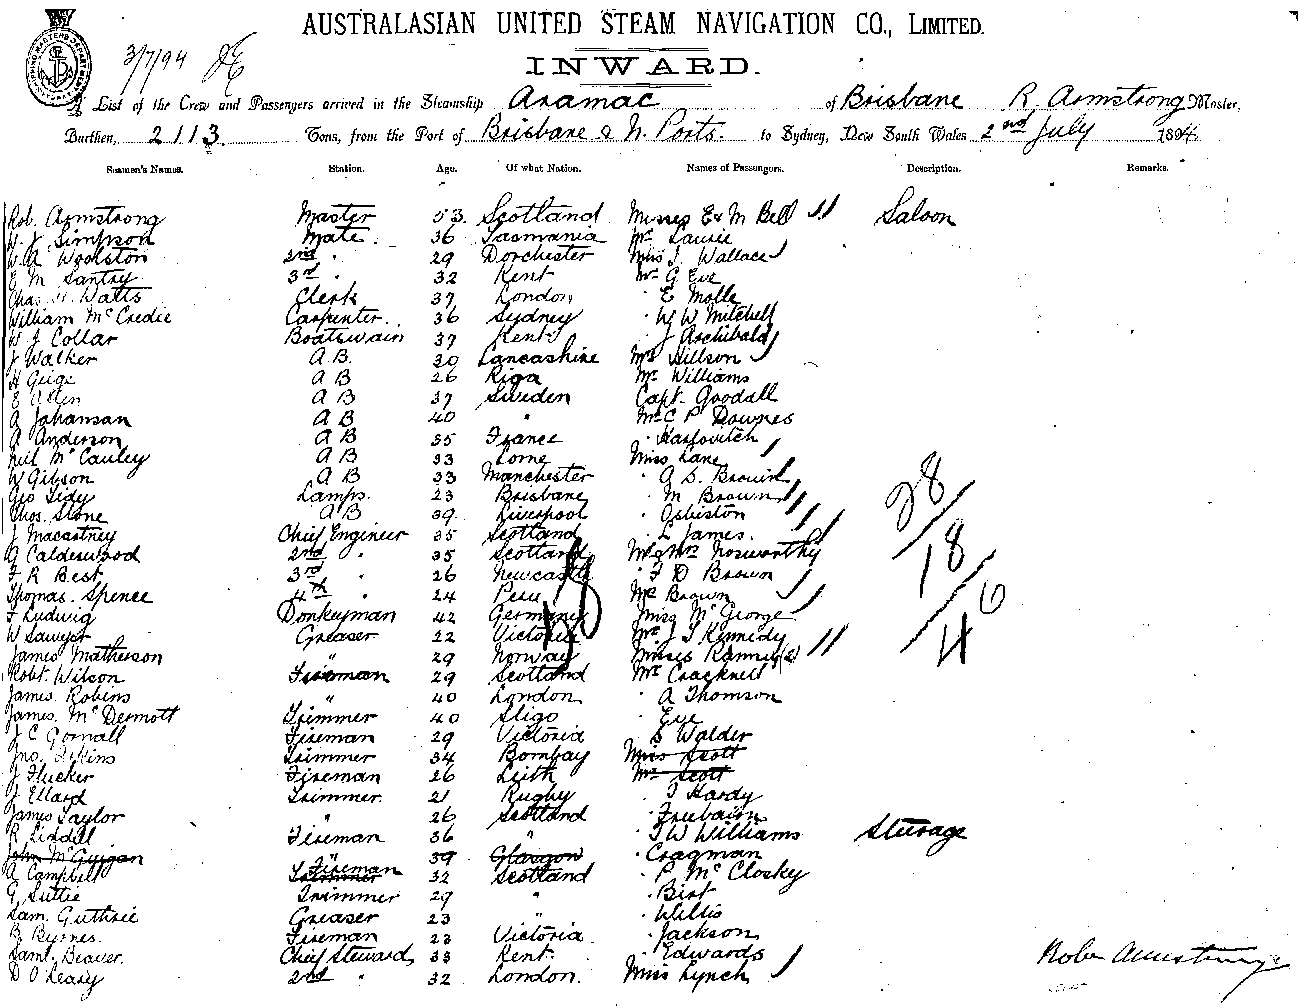 AUSTRALASIAN UNITED STEAM NAVIGATION CO., LIMITED.
3/7/94
INWARD.
A List of the Crew and Passengers arrived in the Steamship Aramac of Brisbane R Armstrong Master,
Burthen, 2113 Tons, from the Port of Brisbane & N. Ports. to Sydney, New South Wales 2nd July 1894
Seamen's Names. Station. Age. Of what Nation. Names of Passengers. Description. Remarks.
Rob. Armstrong Master 53 Scotland Misses E & M Bell Saloon
Simpson Mate 36 Tasmania Mr Laurie
Woolston 2nd " 29 Dorchester Miss J. Wallace
E M Santry 3rd " 32 Kent Mr G Eve
Chas. H. Watts Clerk 37 London " E Molle
William McCredie Carpenter 36 Sydney " W W Mitchell
W J Collar Boatswain 37 Kent " J Archibald
J Walker A.B. 30 Lancashire Hillson
H Geige A B 26 Riga Mr Williams
E Allen A B 37 Sweden Capt. Goodall
A Johansan A B 40 " Mr C P Downes
A Anderson A B 35 France " Karlovitch
Neil McCauley A B 33 Lorne Miss Lane
W Gibson A B 33 Manchester " A S. Brown
Geo Tidy Lamps. 23 Brisbane " M Brown
Thos. Stone A B 39 Liverpool " Osbiston
J Macartney Chief Engineer 35 Scotland " L James
A Calderwood 2nd " 35 Scotland Mr & Mrs Nosworthy
F R Best 3rd " 26 Newcastle " F D Brown
Thomas Spence 4th 24 Peru Brown
F Ludwig Donkeyman 42 Germany Miss McGeorge
W Sawyer Greaser 22 Victoria Mr J T Kennedy
James Matherson " 29 Norway Misses (2)
Robt. Wilson Fireman 29 Scotland Mr Cracknell
James Robins " 40 London " A Thomson
James McDermott Trimmer 40 Sligo " Eve
J C Gornall Fireman 29 Victoria " S Walder
Jno. Trimmer 34 Bombay Miss Scott
J Flucker Fireman 26 Leith Mr Scott
J Ellard Trimmer 21 Rugby " T Hardy
James Taylor " 26 Scotland " Freebairn
R Liddell Fireman 36 " " T W Williams Steerage
John McGuigan " 39 Glasgow " Cragman
A Campbell Trimmer Fireman 32 Scotland " P McClosky
G Suttie Trimmer 29 " " Birt
Sam. Guthrie Greaser 23 " " Willis
B Byrnes Fireman 23 Victoria " Jackson
Saml. Beaver Chief Steward 33 Kent " Edwards
D O'Leary 2nd " 32 London. Miss Lynch
28
18
46
Robr Armstrong